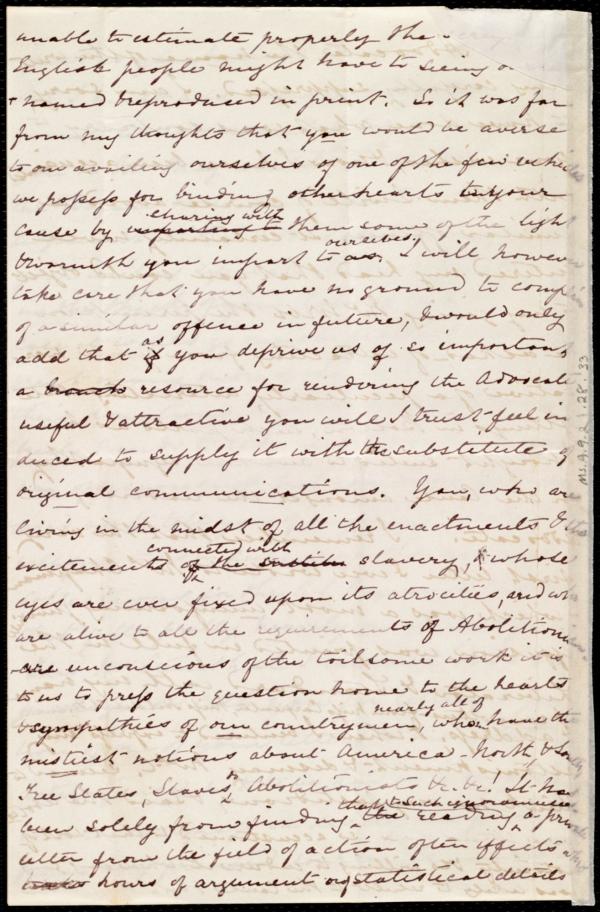 unable to estimate properly the
English people might have to seeing
named & reproduced in print. So it was far
from my thoughts that you would be averse
to our availing ourselves of one of the few
we possess for binding other hearts to your
sharing with
cause by imparting to them some of the light
ourselves,
& warmth you impart to us, I will however
take care that you have no ground to complain
of a similar offence in future, & would only
as
add that if you deprive us of so important
a branch resource for rendering the Advocate
useful & attractive you will I trust feel in
duced to supply it with the substitute of
original communications. You, who are
living in the midst of all the enactments & the
connected with
excitements of the slavery, & whose
eyes are ever fixed upon its atrocities, and who
are alive to all the requirements of Abolition
are unconscious of the toilsome work it is
to us to press the question home to the hearts
nearly all of
& sympathies of our countrymen, whom have the
mistiest notions about America North, & South
Free States, Slaves, Abolitionists &c. &c! It has
that to such ignoramuses
been solely from finding the reading a private
letter from the field of action often effects
hours of argument or statistical details
Ms.A.9.2.28.33